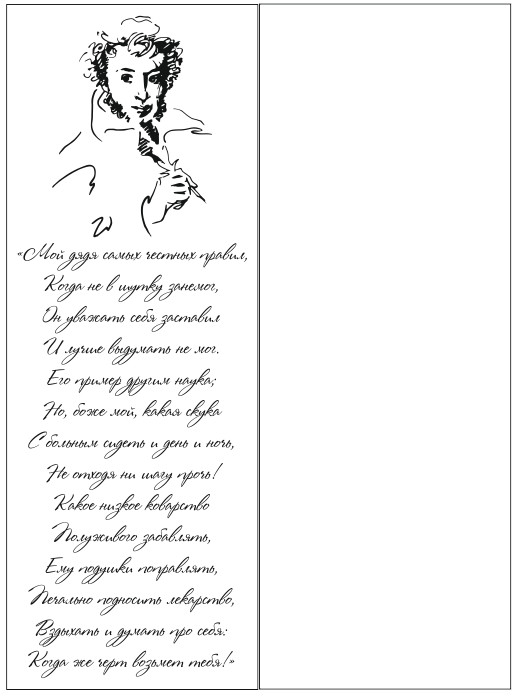 «Мой дядя самых честных правил,
Когда не в шутку занемог,
Он уважать себя заставил
И лучше выдумать не мог.
Его пример другим наука;
Но, боже мой, какая скука
С больным сидеть и день и ночь,
Не отходя ни шагу прочь!
Какое низкое коварство
Полуживого забавлять,
Ему подушки поправлять,
Печально подносить лекарство,
Вздыхать и думать про себя:
Когда же черт возьмет тебя!»